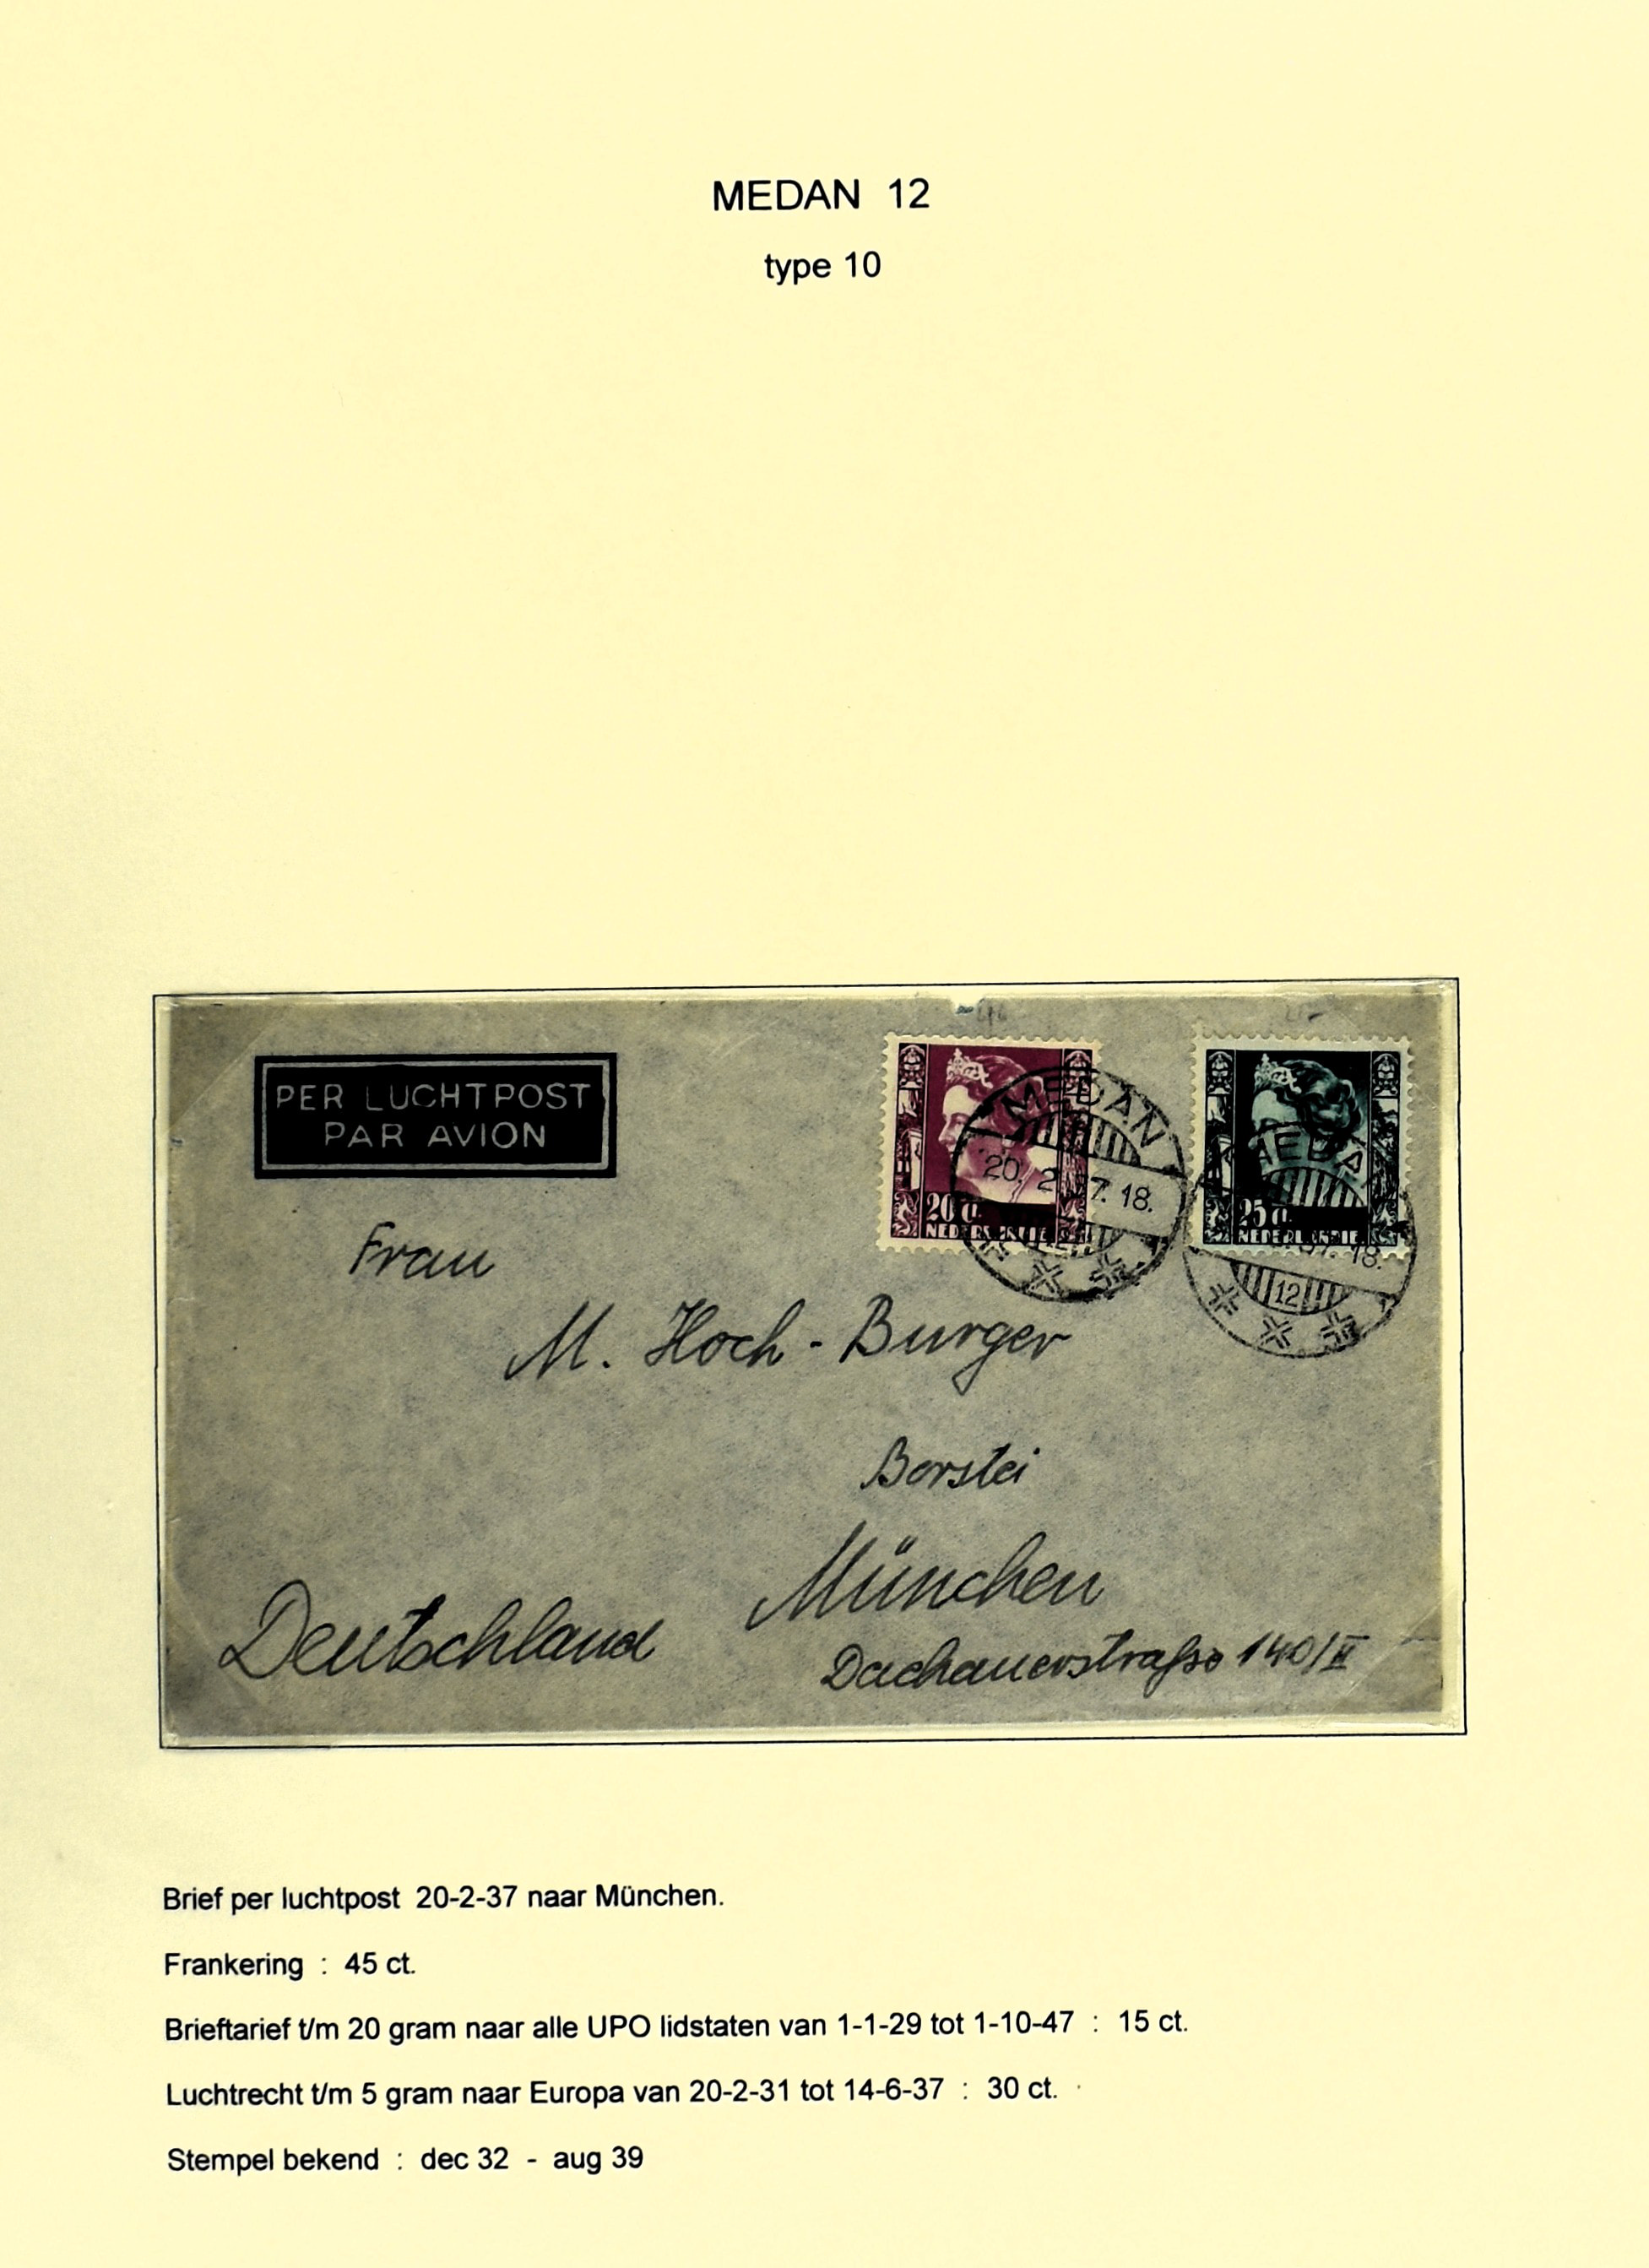 MEDAN 12
type 10
PER LUCHTPOST
PAR AVION
20 ct.
NEDERL. INDIE
25 ct.
NEDERL. INDIE
MEDAN
20. 2 37. 18.
12
MEDAN
37. 18.
12
Frau
M. Hoch-Burger
Borstei
München
Deutschland
Dachauerstraße 140/II
Brief per luchtpost 20-2-37 naar München.
Frankering : 45 ct.
Brieftarief t/m 20 gram naar alle UPO lidstaten van 1-1-29 tot 1-10-47 : 15 ct.
Luchtrecht t/m 5 gram naar Europa van 20-2-31 tot 14-6-37 : 30 ct.
Stempel bekend : dec 32 - aug 39